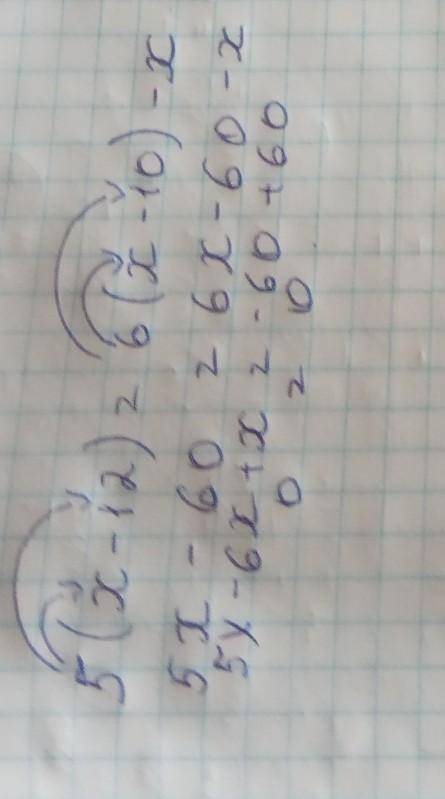 5(x-12) = 6(x-10)-x
5x - 60 = 6x - 60 - x
5x - 6x + x = -60 + 60
0 = 0